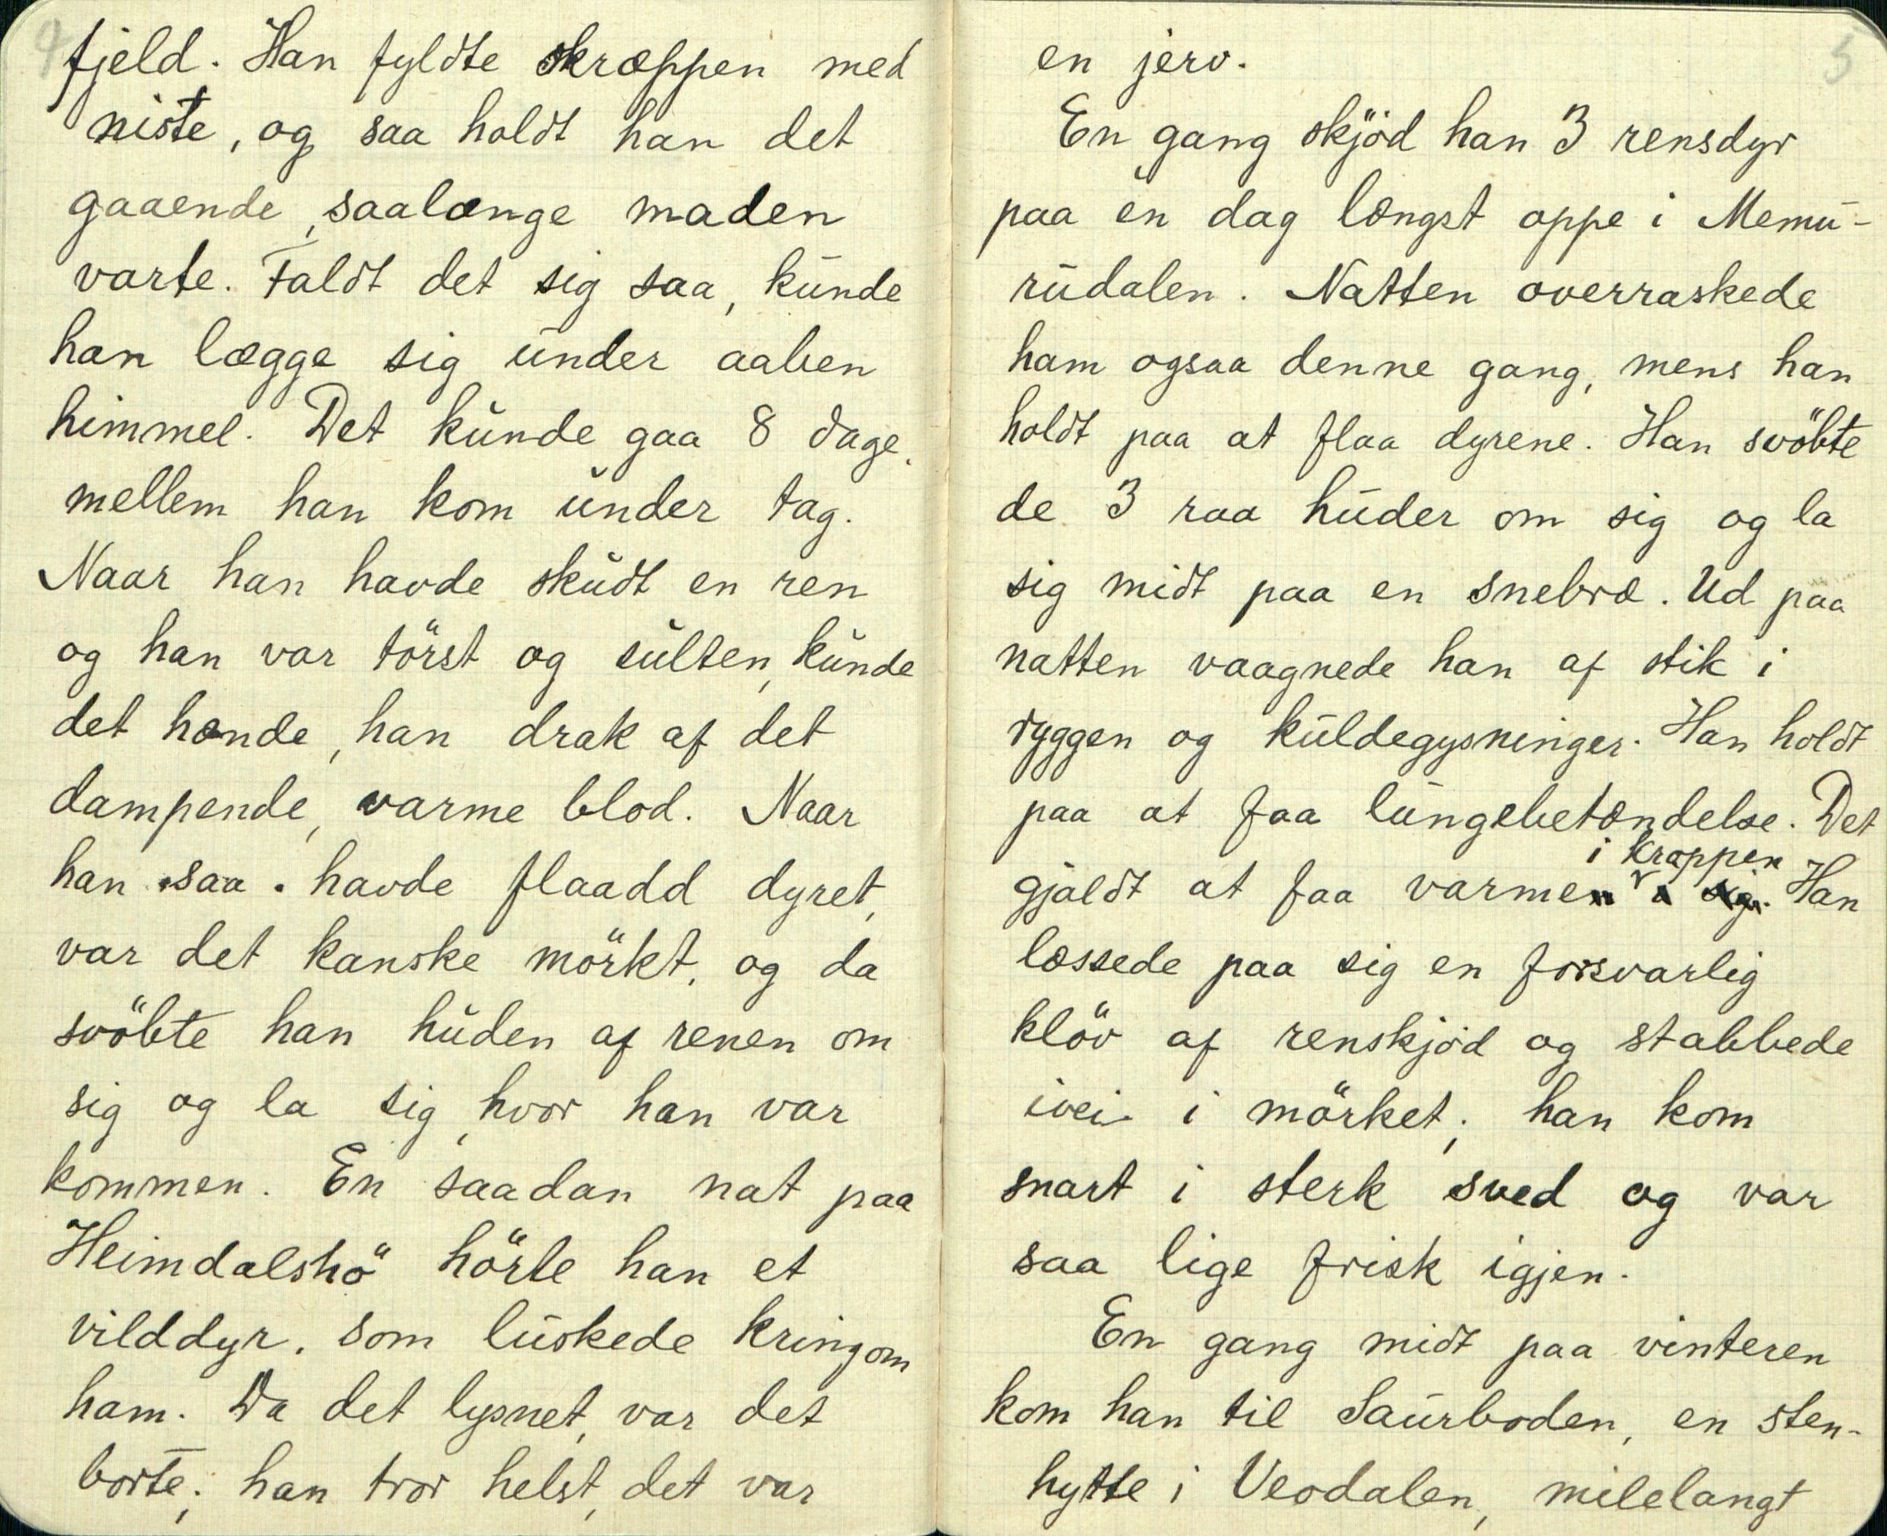 4
fjeld. Han fyldte skræppen med
niste, og saa holdt han det
gaaende, saalænge maden
varte. Faldt det sig saa, kunde
han lægge sig under aaben
himmel. Det kunde gaa 8 dage,
mellem han kom under tag.
Naar han havde skudt en ren
og han var törst og sulten, kunde
det hænde, han drak af det
dampende, varme blod. Naar
han saa havde flaadd dyret,
var det kanske mörkt, og da
svöbte han huden af renen om
sig og la sig, hvor han var
kommen. En saadan nat paa
Heimdalshö hörte han et
vilddyr, som luskede kringom
ham. Da det lysnet, var det
borte; han tror helst, det var
5
en jerv.
En gang skjöd han 3 rensdyr
paa én dag længst oppe i Memu-
rudalen. Natten overraskede
ham ogsaa denne gang, mens han
holdt paa at flaa dyrene. Han svöbte
de 3 raa huder om sig og la
sig midt paa en snebræ. Ud paa
natten vaagnede han af stik i
ryggen og kuldegysninger. Han holdt
paa at faa lungebetændelse. Det
i kroppen
gjaldt at faa varmen i sig. Han
læssede paa sig en forsvarlig
klöv af renskjöd og stabbede
ivei i mörket; han kom
snart i sterk sved og var
saa lige frisk igjen.
En gang midt paa vinteren
kom han til Saurboden, en sten-
hytte i Veodalen, milelangt